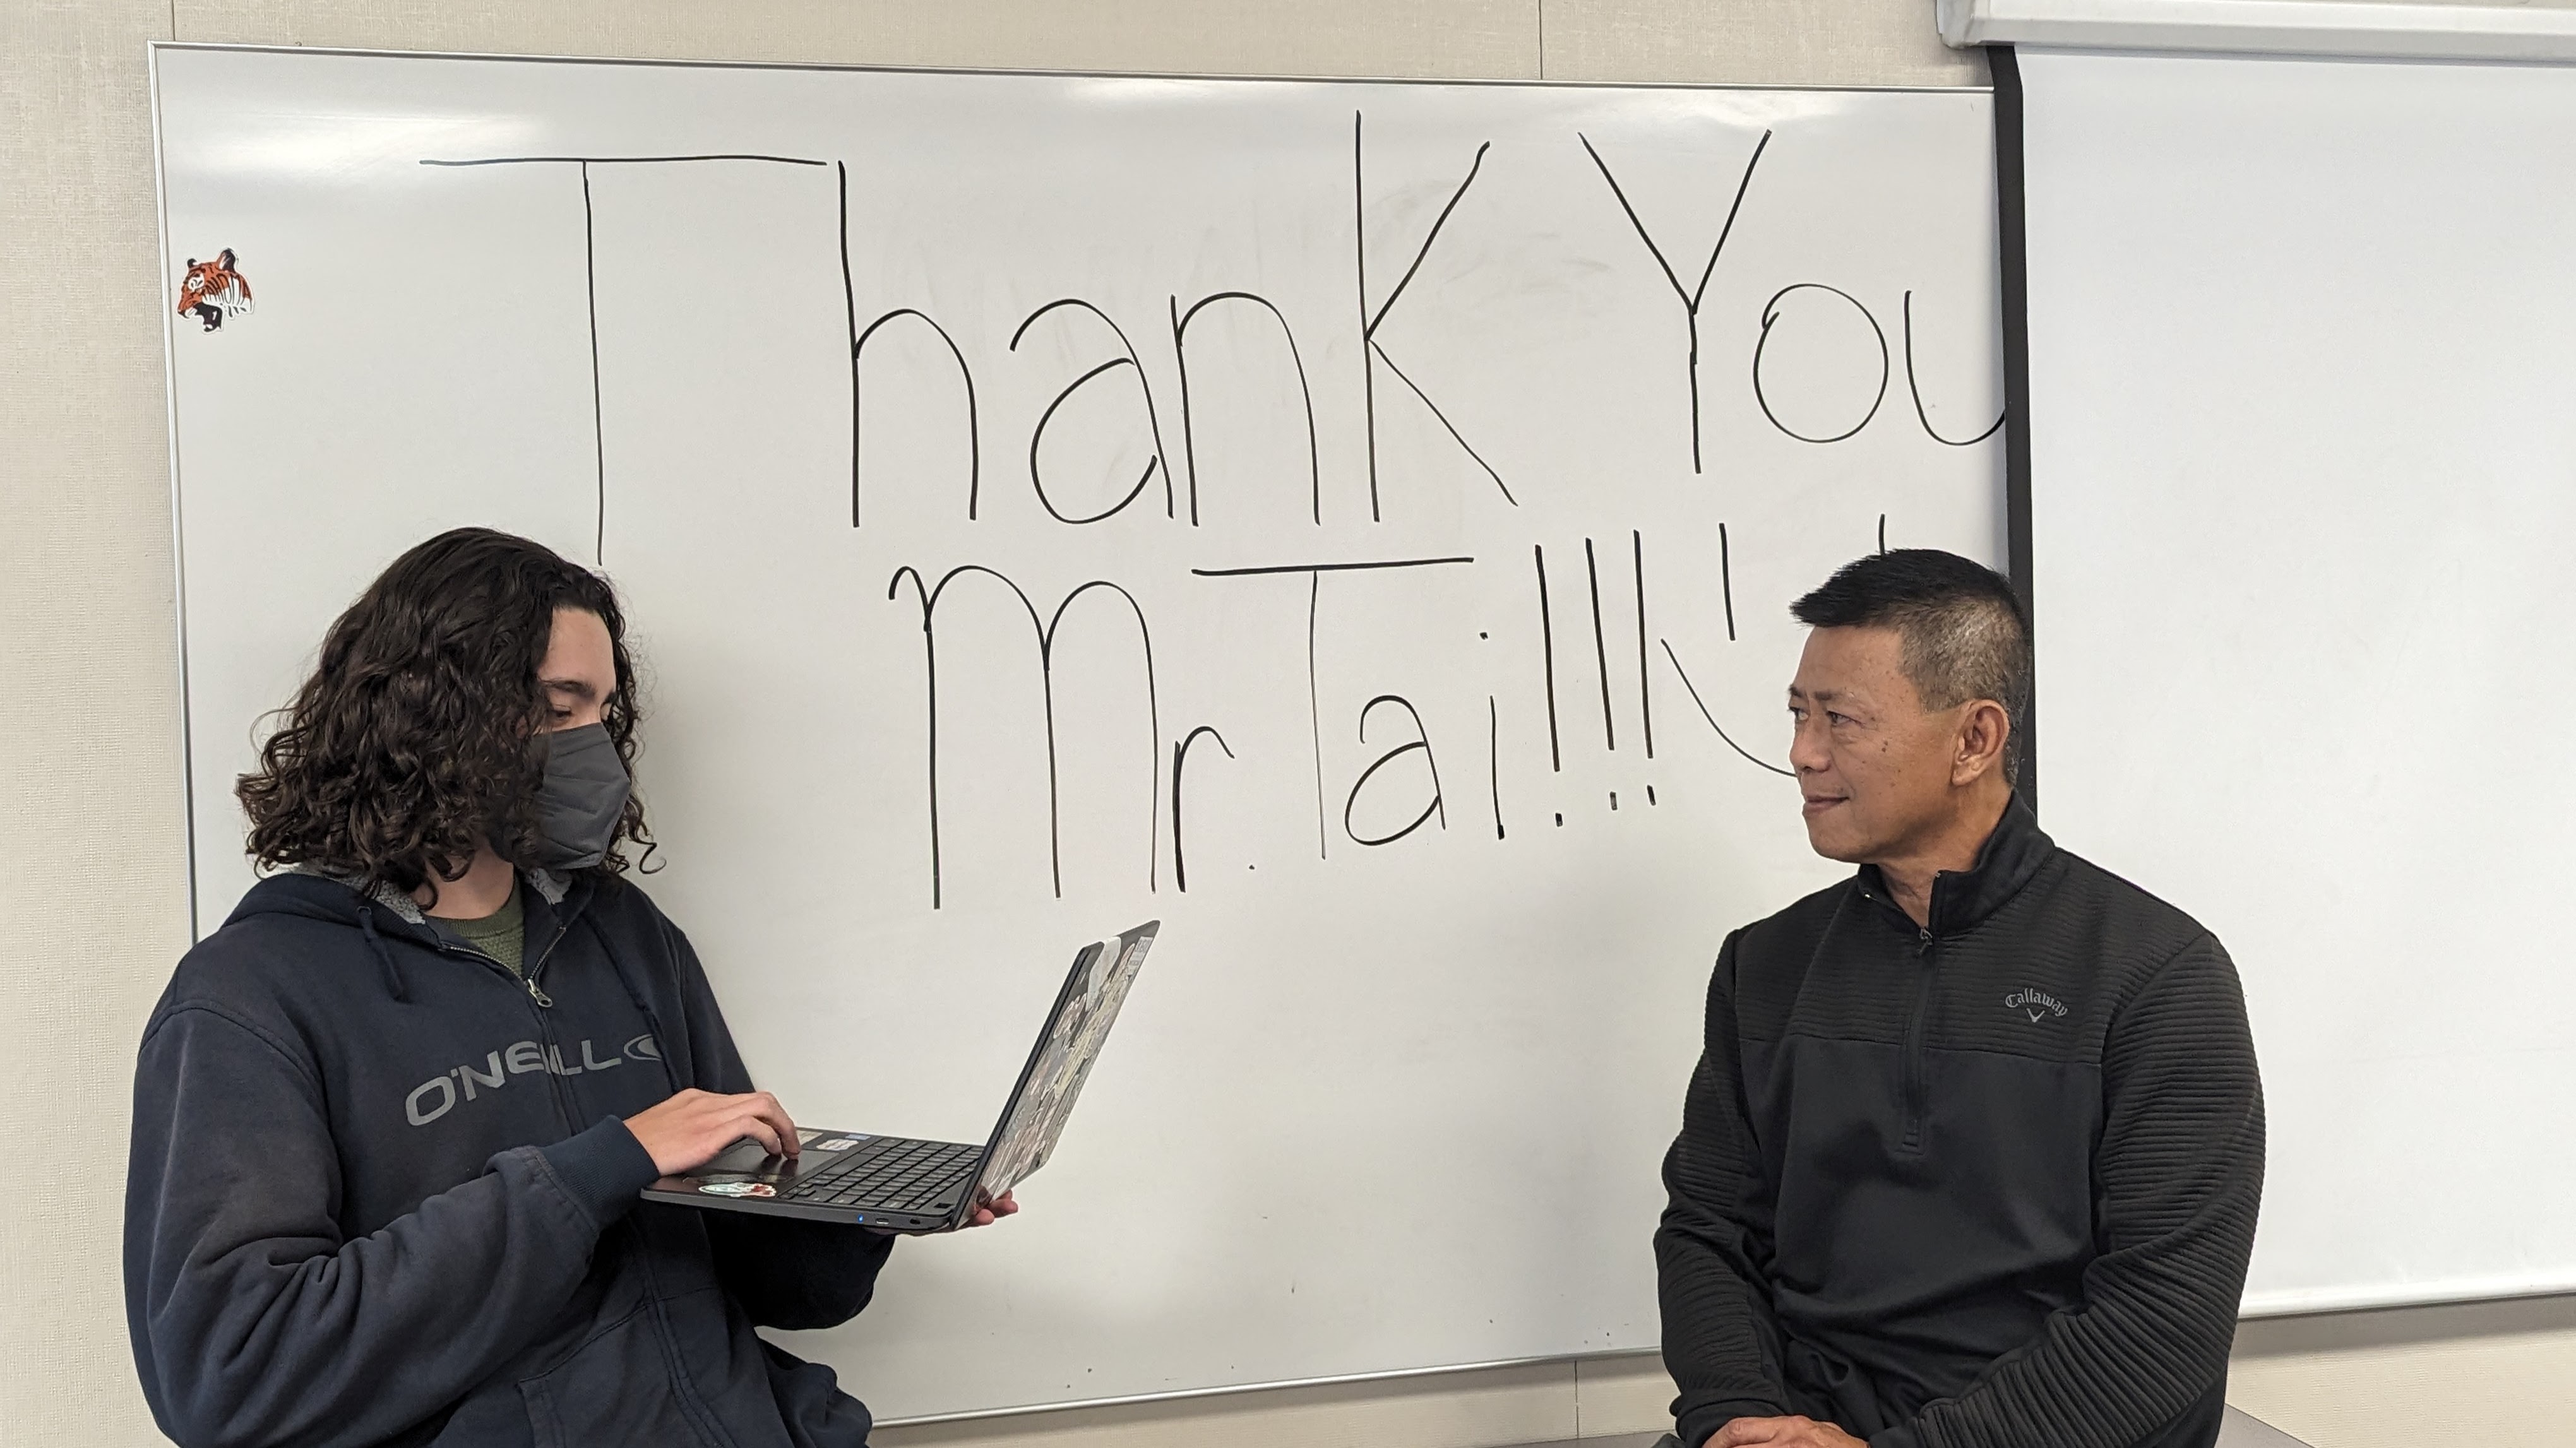 Thank You
Mr. Tai!!!
O'NEILL
Callaway